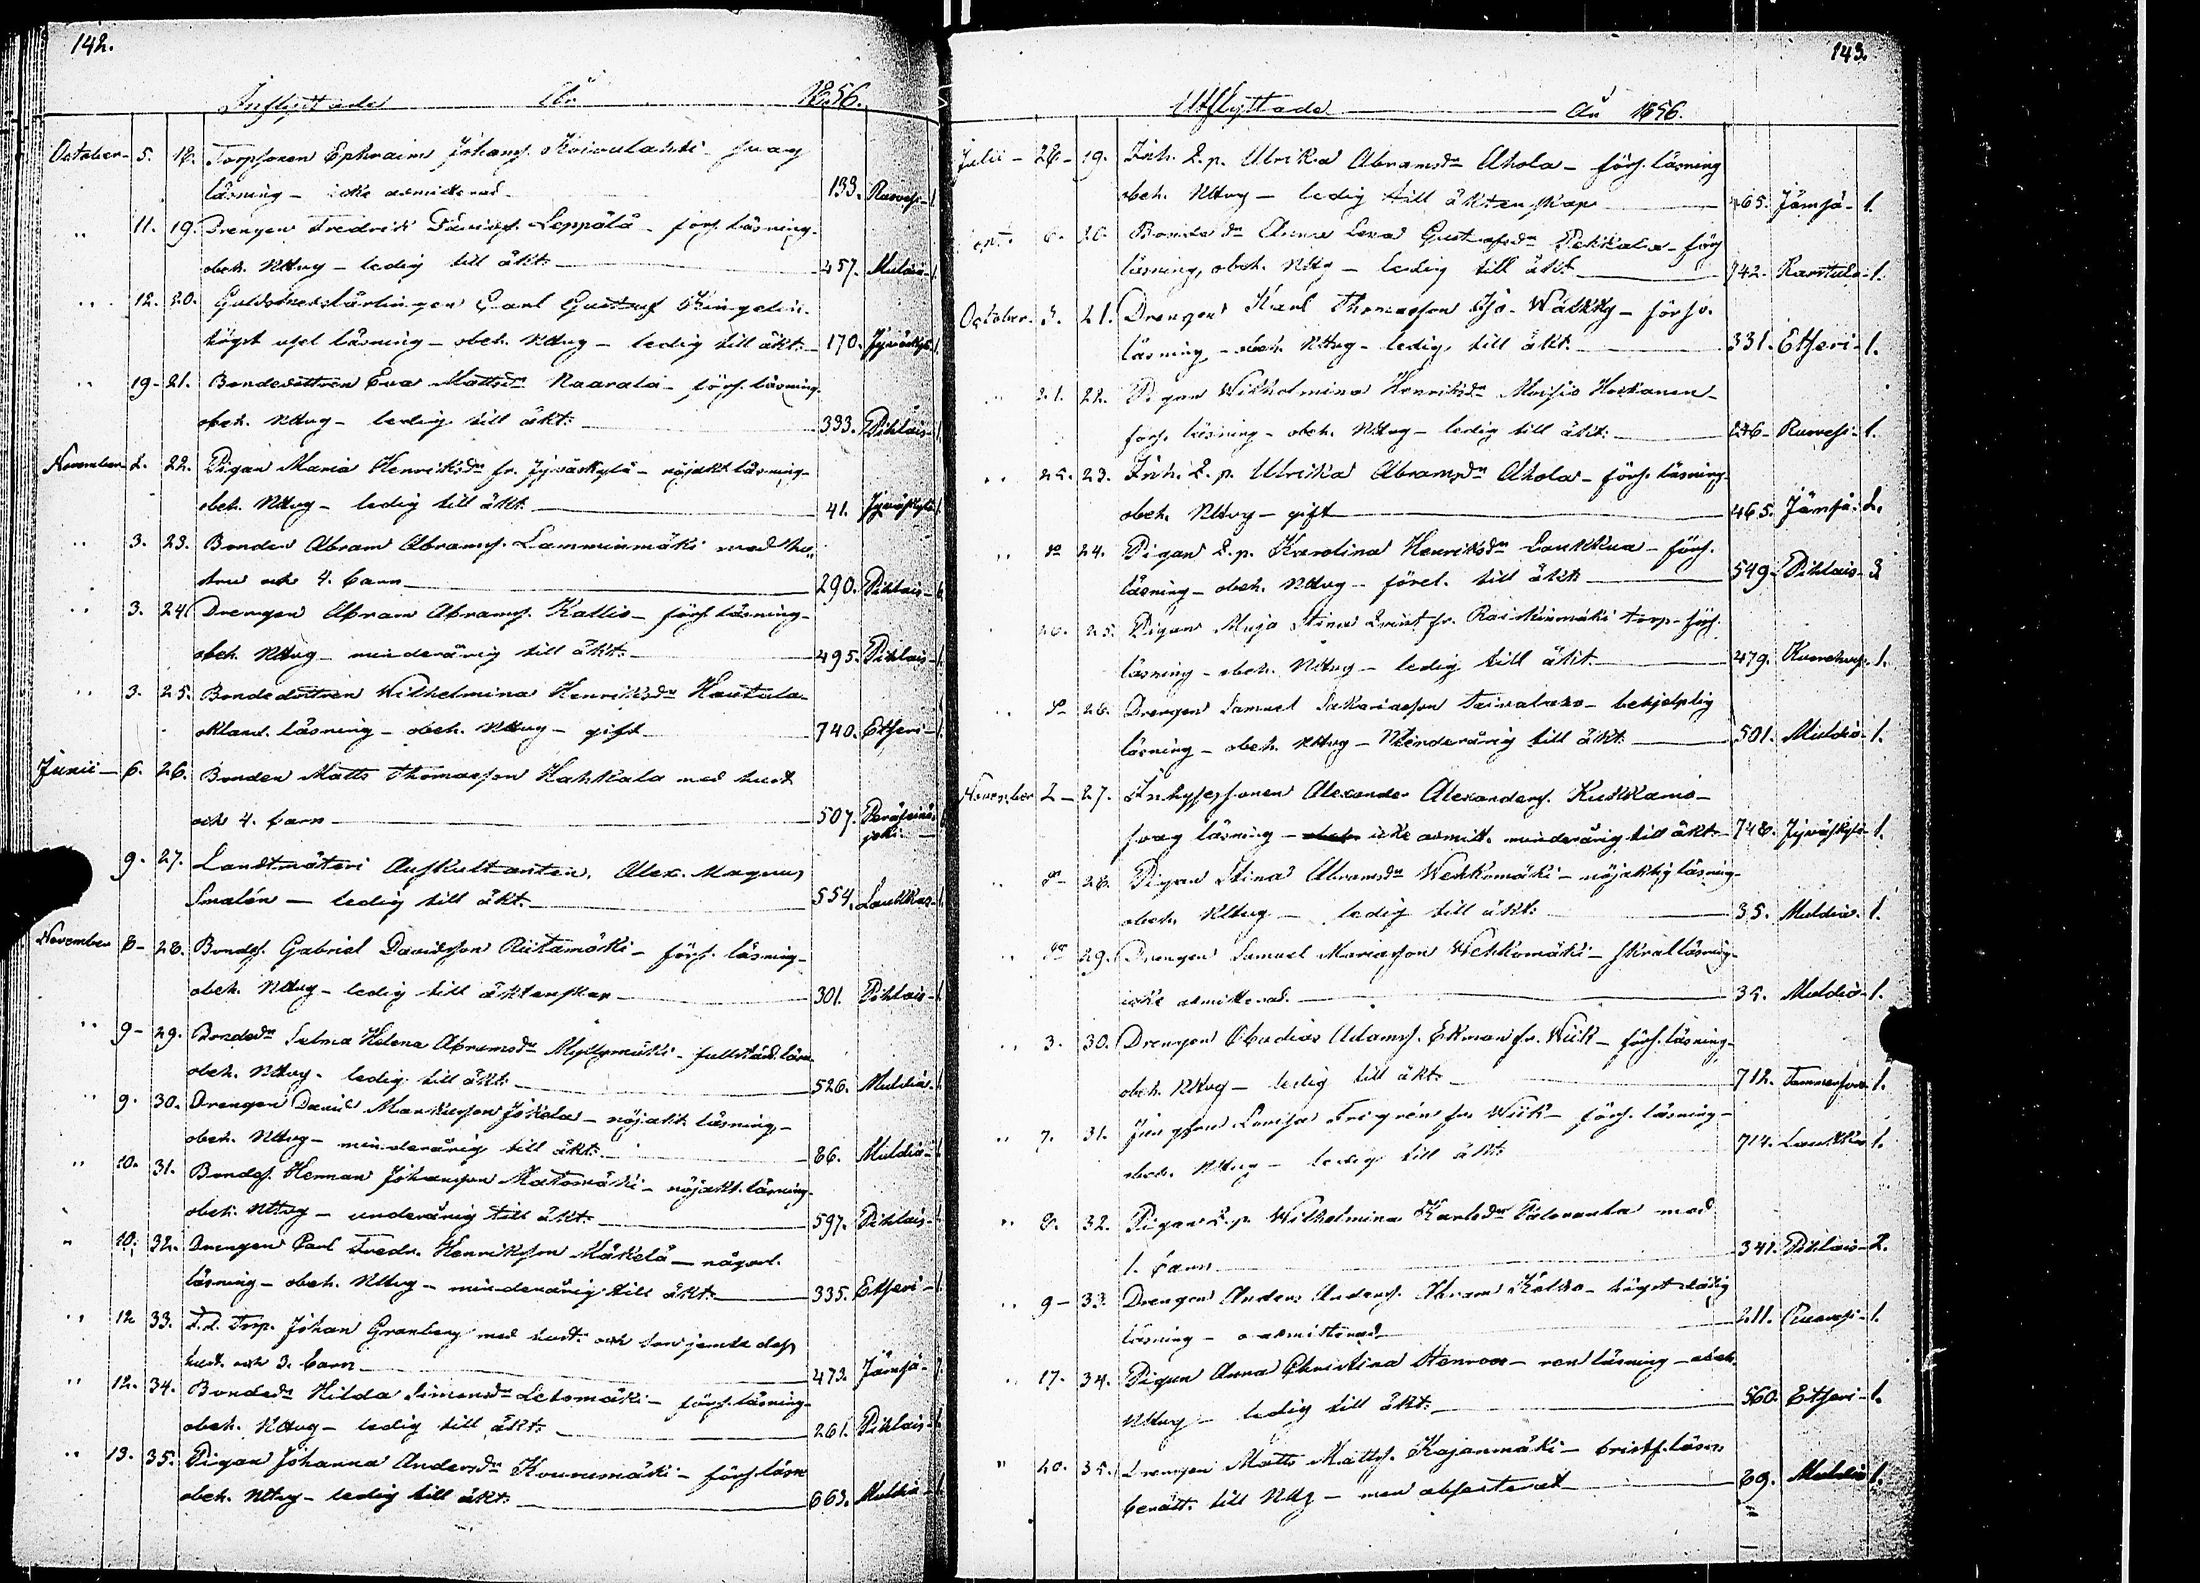 142.
Inflyttade År 1856.
October 5. 18. Torpsonen Ephraim Johans. Koivulahti svag
läsning - icke admitterad 133. Ruovesi 1.
" 11. 19. Drengen Fredrik Davids. Leppälä - förs. läsning -
obeh. Nttvg - ledig till äkt. 457. Multia 1.
" 12. 20. Guldsmedslärlingen Carl Gustaf Ringelin
högst usel läsning - obeh. Nttvg - ledig till äkt. 170. Jyväskylä 1.
" 19 21. Bondedottren Eva Mattsdr Naarala - förs. läsning -
obeh. Nttvg - ledig till äkt. 333. Pihlais 1.
November 2. 22. Pigan Maria Henriksdr fr. Jyväskylä - nöjakt läsning -
obeh. Nttvg - ledig till äkt. 41. Jyväskylä 1.
" 3. 23. Bonden Abram Abrams. Lamminmäki med hu-
stru och 4. barn 290. Pihlais 6.
" 3. 24. Drengen Abram Abrams. Kallio - förs. läsning -
obeh. Nttvg - minderårig till äkt. 495. Pihlais 1.
" 3. 25. Bondedottren Wilhelmina Henriksdr Hautala
okland. läsning - obeh. Nttvg - gift 740. Etseri 1.
Junii 6. 26. Bonden Matts Thomasson Hahkala med hust
och 4. barn 507. Peräseinäjoki
9. 27. Landtmäteri Auskultanten, Alex. Magnus
Smalén - ledig till äkt. 554. Laukkas 1.
November 8 28. Bondes. Gabriel Davidsson Riitamäki - förs. läsning -
obeh. Nttvg - ledig till äktenskap 301. Pihlais 1.
" 9 29. Bondedr Selma Helena Abramsdr Myllymäki - fullständ. läsn
obeh. Nttvg - ledig till äkt. 526. Multia 1.
" 9. 30. Drengen David Markusson Jokela - nöjakt. läsning -
obeh. Nttvg - minderårig till äkt. 86. Multia 1.
" 10. 31. Bondes. Herman Johansson Matomäki - nöjakt. läsning -
obeh. Nttvg - underårig till äkt. 597. Pihlais 1.
" 10. 32. Drengen Carl Fredr. Henriksson Mäkelä - någorl.
läsning - obeh. Nttvg - minderårig till äkt. 335. Etseri 1.
" 12 33. F.d. Torp. Johan Granberg med hust. och son jemte dess
hust. och 3. barn 473. Jämsä 7.
" 12. 34. Bondedr Hilda Simonsdr Lehtomäki - förs. läsning -
obeh. Nttvg - ledig till äkt. 261. Pihlais 1.
" 13. 35. Pigan Johanna Andersdr Kourumäki - förs. läsn
obeh. Nttvg - ledig till äkt. 663. Multia 1.
143.
Utflyttade År 1856.
Julii 28 19. Inh. L.p. Ulrika Abramsdr Ahola - förs. läsning
obeh. Nttvg - ledig till äktenskap 465. Jämsä 1.
6. 20. Bondedr Anna Lena Gustafsdr Pekkala - förs
läsning, obeh. Nttvg - ledig till äkt 742. Karstula 1.
October 3. 21. Drengen Karl Thomasson Iso-Wälkky - försv.
läsning - obeh. Nttvg - ledig till äkt. 331. Etseri 1.
" 21. 22. Pigan Wilhelmina Henriksdr Moisio Hoskanen -
förs. läsning - obeh. Nttvg - ledig till äkt. 246 Ruovesi 1.
" 25. 23. Inh. L.p. Ulrika Abramsdr Ahola - förs. läsning -
obeh. Nttvg - gift 465. Jämsä 2.
" do 24. Pigan L.p. Karolina Henriksdr Laukkua - förs.
läsning - obeh. Nttvg - förel. till äkt 549. Pihlais 3.
26. 25. Pigan Maja Stina Qvist fr. Raiskinmäki torp - förs.
läsning - obeh. Nttvg - ledig till äkt 479. Kuorehvesi 1.
" do 26. Drengen Samuel Sakariasson Taivalaho - behjelplig
läsning - obeh. Nttvg - Minderårig till äkt. 501. Multia 1.
November 2 27. Inhysessonen Alexander Alexanders. Kukkamo -
svag läsning - icke admitt. minderårig till äkt. 748. Jyväskylä 1.
" do 28. Pigan Stina Abramsdr Wehkomäki - nöjaktig läsning -
obeh. Nttvg - ledig till äkt. 35. Multia 1.
" do 29. Drengen Samuel Mariasson Wehkomäki - skral läsning -
icke admitterad. 35. Multia 1.
" 3. 30. Drengen Obadias Adams. Ekman fr. Wiik - förs. läsning -
obeh. Nttvg - ledig till äkt. 712. Tammerfors 1.
" 7. 31. Jungfrun Lovisa Frigrén fr. Wiik - förs. läsning -
obeh. Nttvg - ledig till äkt 714. Laukkas 1.
" 8. 32. Pigan L.p. Wilhelmina Karlsdr med
1. barn 341. Pihlais 2.
" 9 33. Drengen Anders Anders. högst dålig
läsning - o admitterad 211. Ruovesi 1.
" 17. 34. Pigan Anna Christina Stenroos - ren läsning - obeh.
Nttvg - ledig till äkt. 560. Etseri 1.
" 20. 35. Drengen Matts Matts. Kajanmäki - bristf. läsn:
berätt. till Nttvg - men absenterat 69. Multia 1.